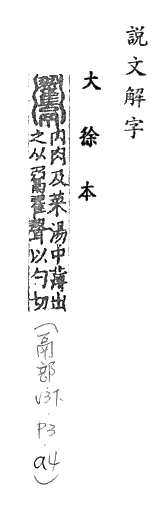 說文解字
大徐本
內肉及菜湯中薄出
之从𩰲翟聲以勺切
(鬲部.V37.P3.a4)